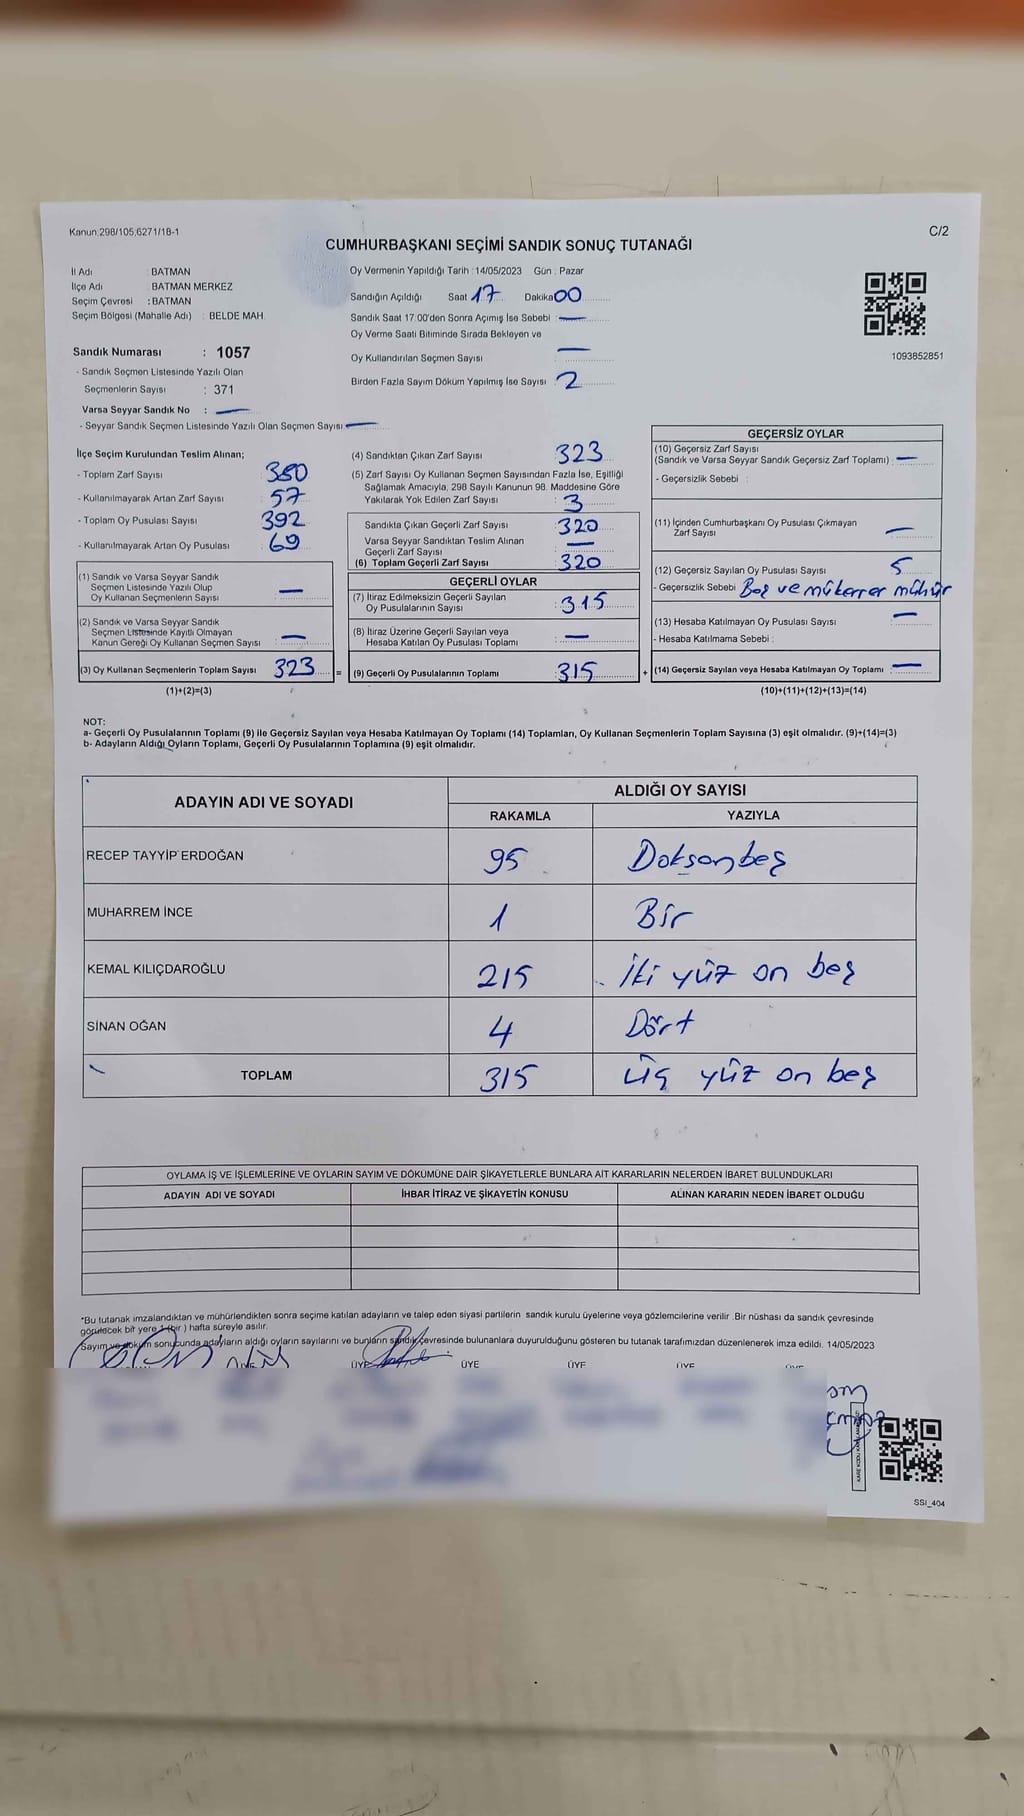 Kanun:298/105,6271/18-1
C/2
CUMHURBAŞKANI SEÇİMİ SANDIK SONUÇ TUTANAĞI
İl Adı : BATMAN
İlçe Adı : BATMAN MERKEZ
Seçim Çevresi : BATMAN
Seçim Bölgesi (Mahalle Adı) : BELDE MAH.
Sandık Numarası : 1057
- Sandık Seçmen Listesinde Yazılı Olan
Seçmenlerin Sayısı : 371
Varsa Seyyar Sandık No : —
- Seyyar Sandık Seçmen Listesinde Yazılı Olan Seçmen Sayısı —
Oy Vermenin Yapıldığı Tarih : 14/05/2023 Gün : Pazar
Sandığın Açıldığı Saat 17 Dakika 00
Sandık Saat 17:00'den Sonra Açımış İse Sebebi —
Oy Verme Saati Bitiminde Sırada Bekleyen ve
Oy Kullandırılan Seçmen Sayısı —
Birden Fazla Sayım Döküm Yapılmış İse Sayısı 2
1093852851
İlçe Seçim Kurulundan Teslim Alınan;
- Toplam Zarf Sayısı 380
- Kullanılmayarak Artan Zarf Sayısı 57
- Toplam Oy Pusulası Sayısı 392
- Kullanılmayarak Artan Oy Pusulası 69
(1) Sandık ve Varsa Seyyar Sandık
Seçmen Listesinde Yazılı Olup
Oy Kullanan Seçmenlerin Sayısı —
(2) Sandık ve Varsa Seyyar Sandık
Seçmen Listesinde Kayıtlı Olmayan
Kanun Gereği Oy Kullanan Seçmen Sayısı —
(3) Oy Kullanan Seçmenlerin Toplam Sayısı 323 =
(1)+(2)=(3)
(4) Sandıktan Çıkan Zarf Sayısı 323
(5) Zarf Sayısı Oy Kullanan Seçmen Sayısından Fazla İse, Eşitliği
Sağlamak Amacıyla, 298 Sayılı Kanunun 98. Maddesine Göre
Yakılarak Yok Edilen Zarf Sayısı 3
Sandıkta Çıkan Geçerli Zarf Sayısı 320
Varsa Seyyar Sandıktan Teslim Alınan
Geçerli Zarf Sayısı —
(6) Toplam Geçerli Zarf Sayısı 320
GEÇERLİ OYLAR
(7) İtiraz Edilmeksizin Geçerli Sayılan
Oy Pusulalarının Sayısı : 315
(8) İtiraz Üzerine Geçerli Sayılan veya
Hesaba Katılan Oy Pusulası Toplamı —
(9) Geçerli Oy Pusulalarının Toplamı : 315 +
GEÇERSİZ OYLAR
(10) Geçersiz Zarf Sayısı
(Sandık ve Varsa Seyyar Sandık Geçersiz Zarf Toplamı) : —
- Geçersizlik Sebebi :
(11) İçinden Cumhurbaşkanı Oy Pusulası Çıkmayan
Zarf Sayısı —
(12) Geçersiz Sayılan Oy Pusulası Sayısı 5
- Geçersizlik Sebebi Boş ve mükerrer mühür
(13) Hesaba Katılmayan Oy Pusulası Sayısı —
- Hesaba Katılmama Sebebi :
(14) Geçersiz Sayılan veya Hesaba Katılmayan Oy Toplamı —
(10)+(11)+(12)+(13)=(14)
NOT:
a- Geçerli Oy Pusulalarının Toplamı (9) ile Geçersiz Sayılan veya Hesaba Katılmayan Oy Toplamı (14) Toplamları, Oy Kullanan Seçmenlerin Toplam Sayısına (3) eşit olmalıdır. (9)+(14)=(3)
b- Adayların Aldığı Oyların Toplamı, Geçerli Oy Pusulalarının Toplamına (9) eşit olmalıdır.
ADAYIN ADI VE SOYADI ALDIĞI OY SAYISI
RAKAMLA YAZIYLA
RECEP TAYYİP ERDOĞAN 95 Doksanbeş
MUHARREM İNCE 1 Bir
KEMAL KILIÇDAROĞLU 215 İki yüz on beş
SİNAN OĞAN 4 Dört
TOPLAM 315 üç yüz on beş
OYLAMA İŞ VE İŞLEMLERİNE VE OYLARIN SAYIM VE DÖKÜMÜNE DAİR ŞİKAYETLERLE BUNLARA AİT KARARLARIN NELERDEN İBARET BULUNDUKLARI
ADAYIN ADI VE SOYADI İHBAR İTİRAZ VE ŞİKAYETİN KONUSU ALINAN KARARIN NEDEN İBARET OLDUĞU
*Bu tutanak imzalandıktan ve mühürlendikten sonra seçime katılan adayların ve talep eden siyasi partilerin sandık kurulu üyelerine veya gözlemcilerine verilir. Bir nüshası da sandık çevresinde
görülecek bir yere 1 (bir) hafta süreyle asılır.
Sayım ve döküm sonucunda adayların aldığı oyların sayılarını ve bunların sandık çevresinde bulunanlara duyurulduğunu gösteren bu tutanak tarafımızdan düzenlenerek imza edildi. 14/05/2023
ÜYE ÜYE ÜYE ÜYE
SSİ_404